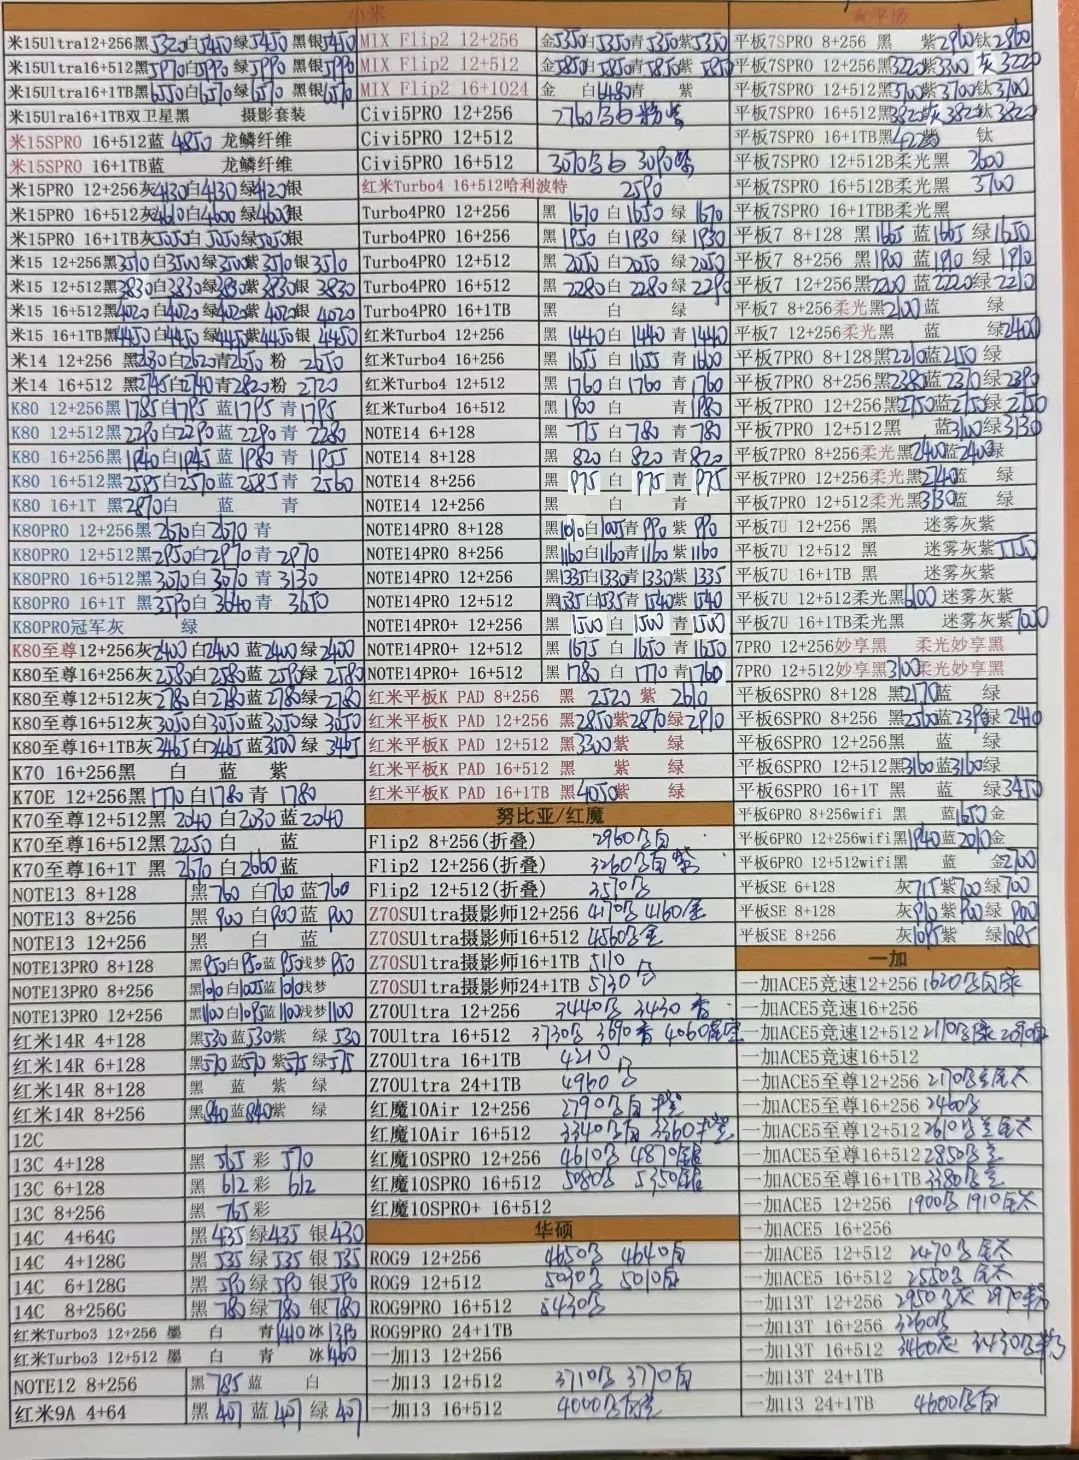 小米
米15Ultra12+256黑5320白5450绿5450 黑银5450
米15Ultra16+512黑5970白5990绿5990 黑银5990
米15Ultra16+1TB黑6550白6510绿6510 黑银6510
米15Ulra16+1TB双卫星黑 摄影套装
米15SPRO 16+512蓝 4850 龙鳞纤维
米15SPRO 16+1TB蓝 龙鳞纤维
米15PRO 12+256灰4130白4130绿4120银
米15PRO 16+512灰4610白4600绿4600银
米15PRO 16+1TB灰5050白5050绿5050银
米15 12+256黑3510白3500绿3500紫3510银3510
米15 12+512黑3830白3830绿3830紫3830银 3830
米15 16+512黑4020白4020绿4020紫4020银 4020
米15 16+1TB黑4450白4450绿4450紫4450银 4450
米14 12+256 黑2630白2620青2650 粉 2650
米14 16+512 黑2745白2740青2820粉 2720
K80 12+256黑1785白1795 蓝1795 青1795
K80 12+512黑2290白2290蓝2290青 2280
K80 16+256黑1940白1945蓝1980青 1955
K80 16+512黑2585白2570蓝2585青 2560
K80 16+1T 黑2870白 蓝 青
K80PRO 12+256黑2670白2670 青
K80PRO 12+512黑2950白2970青2970
K80PRO 16+512黑3070白3070青3130
K80PRO 16+1T 黑3590白3640青 3650
K80PRO冠军灰 绿
K80至尊12+256灰2400白2400蓝2400绿2400
K80至尊16+256灰2580白2580蓝2590绿 2580
K80至尊12+512灰2780白2780蓝2780绿2780
K80至尊16+512灰3050白3050蓝3050绿3050
K80至尊16+1TB灰3465白3465蓝3500绿 3465
K70 16+256黑 白 蓝 紫
K70E 12+256黑1770白1780青 1780
K70至尊12+512黑 2040 白2030蓝2040
K70至尊16+512黑 2250 白 蓝
K70至尊16+1T 黑 2670 白2660蓝
NOTE13 8+128 黑760 白760蓝760
NOTE13 8+256 黑900白900蓝900
NOTE13 12+256 黑 白 蓝
NOTE13PRO 8+128 黑950白950蓝950浅梦950
NOTE13PRO 8+256 黑1010白1005蓝1010浅梦
NOTE13PRO 12+256 黑1100白1095蓝1100浅梦1100
红米14R 4+128 黑530蓝530紫 绿530
红米14R 6+128 黑570蓝570紫575绿575
红米14R 8+128 黑 蓝 紫 绿
红米14R 8+256 黑840蓝840紫 绿
12C
13C 4+128 黑 565彩 570
13C 6+128 黑 612彩 612
13C 8+256 黑 765彩
14C 4+64G 黑435绿435银430
14C 4+128G 黑535绿535银535
14C 6+128G 黑590绿590银590
14C 8+256G 黑780绿780银780
红米Turbo3 12+256 墨 白 青1410冰1390
红米Turbo3 12+512 墨 白 青 冰1460
NOTE12 8+256 黑785蓝 白
红米9A 4+64 黑407蓝407绿407
MIX Flip2 12+256 金5350白5350青5350紫5350
MIX Flip2 12+512 金5850白5850青5850紫5850
MIX Flip2 16+1024 金 白6480青 紫
Civi5PRO 12+256 2760
Civi5PRO 12+512
Civi5PRO 16+512 3070 3090
红米Turbo4 16+512哈利波特 2590
Turbo4PRO 12+256 黑1670白1650绿1670
Turbo4PRO 16+256 黑1950白1930绿1930
Turbo4PRO 12+512 黑2050白2050绿2050
Turbo4PRO 16+512 黑2280白2280绿2290
Turbo4PRO 16+1TB 黑 白 绿
红米Turbo4 12+256 黑1440白1440青1440
红米Turbo4 16+256 黑1655白1655青1600
红米Turbo4 12+512 黑1760白1760青1760
红米Turbo4 16+512 黑1900白 青1980
NOTE14 6+128 黑775白780青780
NOTE14 8+128 黑820白820青820
NOTE14 8+256 黑975白975青975
NOTE14 12+256 黑 白 青
NOTE14PRO 8+128 黑1010白1005青990紫990
NOTE14PRO 8+256 黑1160白1160青1160紫1160
NOTE14PRO 12+256 黑1335白1330青1330紫1335
NOTE14PRO 12+512 黑1535白1535青1540紫1540
NOTE14PRO+ 12+256 黑1500白1500青1500
NOTE14PRO+ 12+512 黑1675白1650青1650
NOTE14PRO+ 16+512 黑1780白1770青1760
红米平板K PAD 8+256 黑 2520 紫 2610
红米平板K PAD 12+256 黑2850紫2870绿2910
红米平板K PAD 12+512 黑3300紫 绿
红米平板K PAD 16+512 黑 紫 绿
红米平板K PAD 16+1TB 黑4050紫 绿
努比亚/红魔
Flip2 8+256(折叠) 2960
Flip2 12+256(折叠) 3260
Flip2 12+512(折叠) 3510
Z70SUltra摄影师12+256 4170 4160
Z70SUltra摄影师16+512 4560
Z70SUltra摄影师16+1TB 5110
Z70SUltra摄影师24+1TB 5730
Z70Ultra 12+256 3440 3430
70Ultra 16+512 3730 3690 4060
Z70Ultra 16+1TB 4210
Z70Ultra 24+1TB 4960
红魔10Air 12+256 2790
红魔10Air 16+512 3340 3360
红魔10SPRO 12+256 4610 4870
红魔10SPRO 16+512 5080 5350
红魔10SPRO+ 16+512
华硕
ROG9 12+256 4650 4640
ROG9 12+512 5030 5010
ROG9PRO 16+512 5430
ROG9PRO 24+1TB
一加13 12+256
一加13 12+512 3710 3770
一加13 16+512 4000
平板
平板7SPRO 8+256 黑 紫2960钛2860
平板7SPRO 12+256黑3220紫3300 灰 3220
平板7SPRO 16+512黑3700紫3700钛3700
平板7SPRO 16+512黑3820灰3820钛3820
平板7SPRO 16+1TB黑4220紫 钛
平板7SPRO 12+512B柔光黑 3600
平板7SPRO 16+512B柔光黑 3700
平板7SPRO 16+1TBB柔光黑
平板7 8+128 黑1665蓝1665绿1650
平板7 8+256 黑1900蓝1910绿1910
平板7 12+256黑2200蓝2220绿2210
平板7 8+256柔光黑2100蓝 绿
平板7 12+256柔光黑 蓝 绿2400
平板7PRO 8+128黑2210蓝2150绿
平板7PRO 8+256黑2380蓝2370绿2390
平板7PRO 12+256黑2750蓝2750绿2750
平板7PRO 12+512黑 蓝3100绿3130
平板7PRO 8+256柔光黑2400蓝2400绿
平板7PRO 12+256柔光黑2740蓝 绿
平板7PRO 12+512柔光黑3130蓝 绿
平板7U 12+256 黑 迷雾灰紫
平板7U 12+512 黑 迷雾灰紫5550
平板7U 16+1TB 黑 迷雾灰紫
平板7U 12+512柔光黑6100 迷雾灰紫
平板7U 16+1TB柔光黑 迷雾灰紫7000
7PRO 12+256妙享黑 柔光妙享黑
7PRO 12+512妙享黑3100柔光妙享黑
平板6SPRO 8+128 黑2170蓝 绿
平板6SPRO 8+256 黑2500蓝2390绿2410
平板6SPRO 12+256黑 蓝 绿
平板6SPRO 12+512黑3160蓝3160绿
平板6SPRO 16+1T 黑 蓝 绿3450
平板6PRO 8+256wifi 黑 蓝1650金
平板6PRO 12+256wifi黑1940蓝2010金
平板6PRO 12+512wifi黑 蓝 金2700
平板SE 6+128 灰715紫700绿700
平板SE 8+128 灰910紫900绿900
平板SE 8+256 灰1095紫 绿1085
一加
一加ACE5竞速12+256 1620
一加ACE5竞速16+256
一加ACE5竞速12+512 2110 2090
一加ACE5竞速16+512
一加ACE5至尊12+256 2170
一加ACE5至尊16+256 2460
一加ACE5至尊12+512 2610
一加ACE5至尊16+512 2850
一加ACE5至尊16+1TB 3380
一加ACE5 12+256 1900 1910
一加ACE5 16+256
一加ACE5 12+512 2470
一加ACE5 16+512 2550
一加13T 12+256 2950 2970
一加13T 16+256 3260
一加13T 16+512 3460 3430
一加13T 24+1TB
一加13 24+1TB 4600